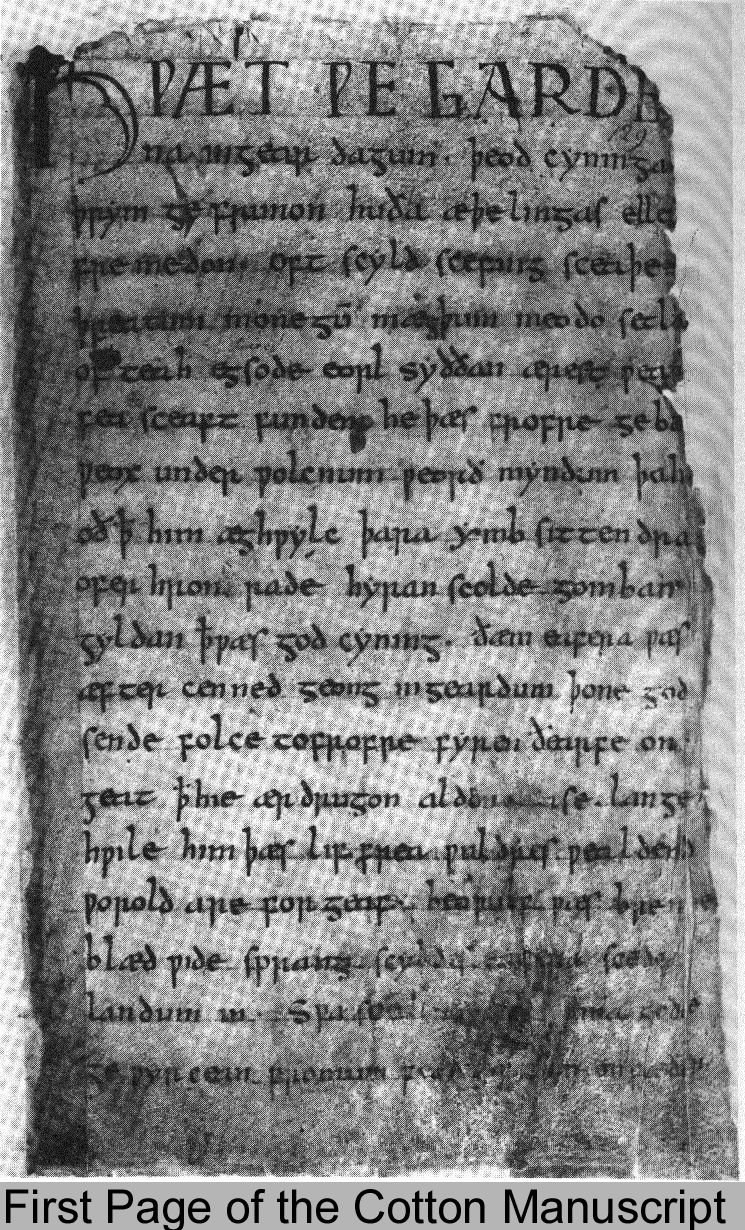 HǷÆT ǷE GARDE
na ingear dagum. þeod cyninga
þrym ge frunon huða æþelingas elle
fremedon. oft scyld scefing sceaþe
þreatum monegū mægþum meodo setla
of teah egsode eorl syððan ærest ƿear
fea sceaft funden he þæs frofre geba
ƿeox under ƿolcnum ƿeorð myndum þah
oð ꝥ him æghƿylc þara ymb sittendra
ofer hron rade hyran scolde gomban
gyldan ꝥ ƿæs god cyning. ðæm eafera ƿæs
æfter cenned geong ingeardum þone god
sende folce tofrofre fyren ðearfe on
geat ꝥ hie ær drugon lange
hƿile him þæs lif frea ƿuldres ƿealdend
ƿorold are for geaf. beoƿulf ƿæs breme
blæd ƿide sprang scyldes eafera scede
landum in. Sƿa gode
ge ƿyrcean fromum
First Page of the Cotton Manuscript